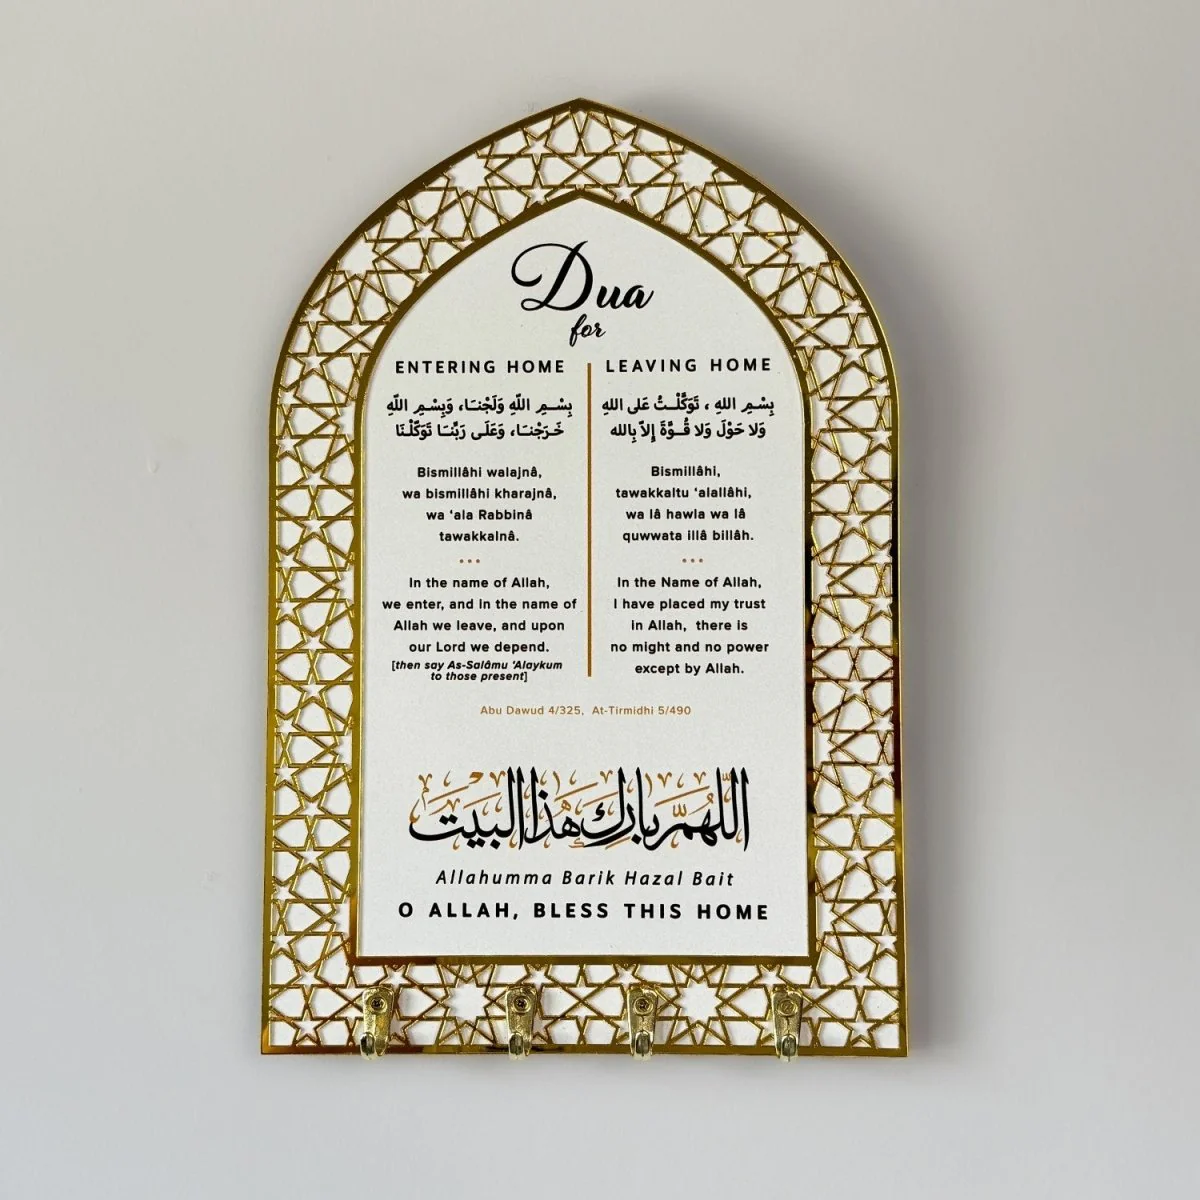 Dua
for
ENTERING HOME
بِسْـمِ اللّهِ وَلَجْنـَا، وَبِسْـمِ اللّهِ
خَـرَجْنـَا، وَعَلَـى رَبِّنـَا تَوَكَّلْنَا
Bismillâhi walajnâ,
wa bismillâhi kharajnâ,
wa ‘ala Rabbinâ
tawakkalnâ.
In the name of Allah,
we enter, and in the name of
Allah we leave, and upon
our Lord we depend.
[then say As-Salâmu ‘Alaykum
to those present]
LEAVING HOME
بِسْمِ اللهِ ، تَوَكَّلْـتُ عَلى اللهِ
وَلا حَوْلَ وَلا قُـوَّةَ إِلاّ بِالله
Bismillâhi,
tawakkaltu ‘alallâhi,
wa lâ hawla wa lâ
quwwata illâ billâh.
In the Name of Allah,
I have placed my trust
in Allah, there is
no might and no power
except by Allah.
Abu Dawud 4/325, At-Tirmidhi 5/490
اللّٰهُمَّ بَارِكْ هٰذَا الْبَيْتَ
Allahumma Barik Hazal Bait
O ALLAH, BLESS THIS HOME